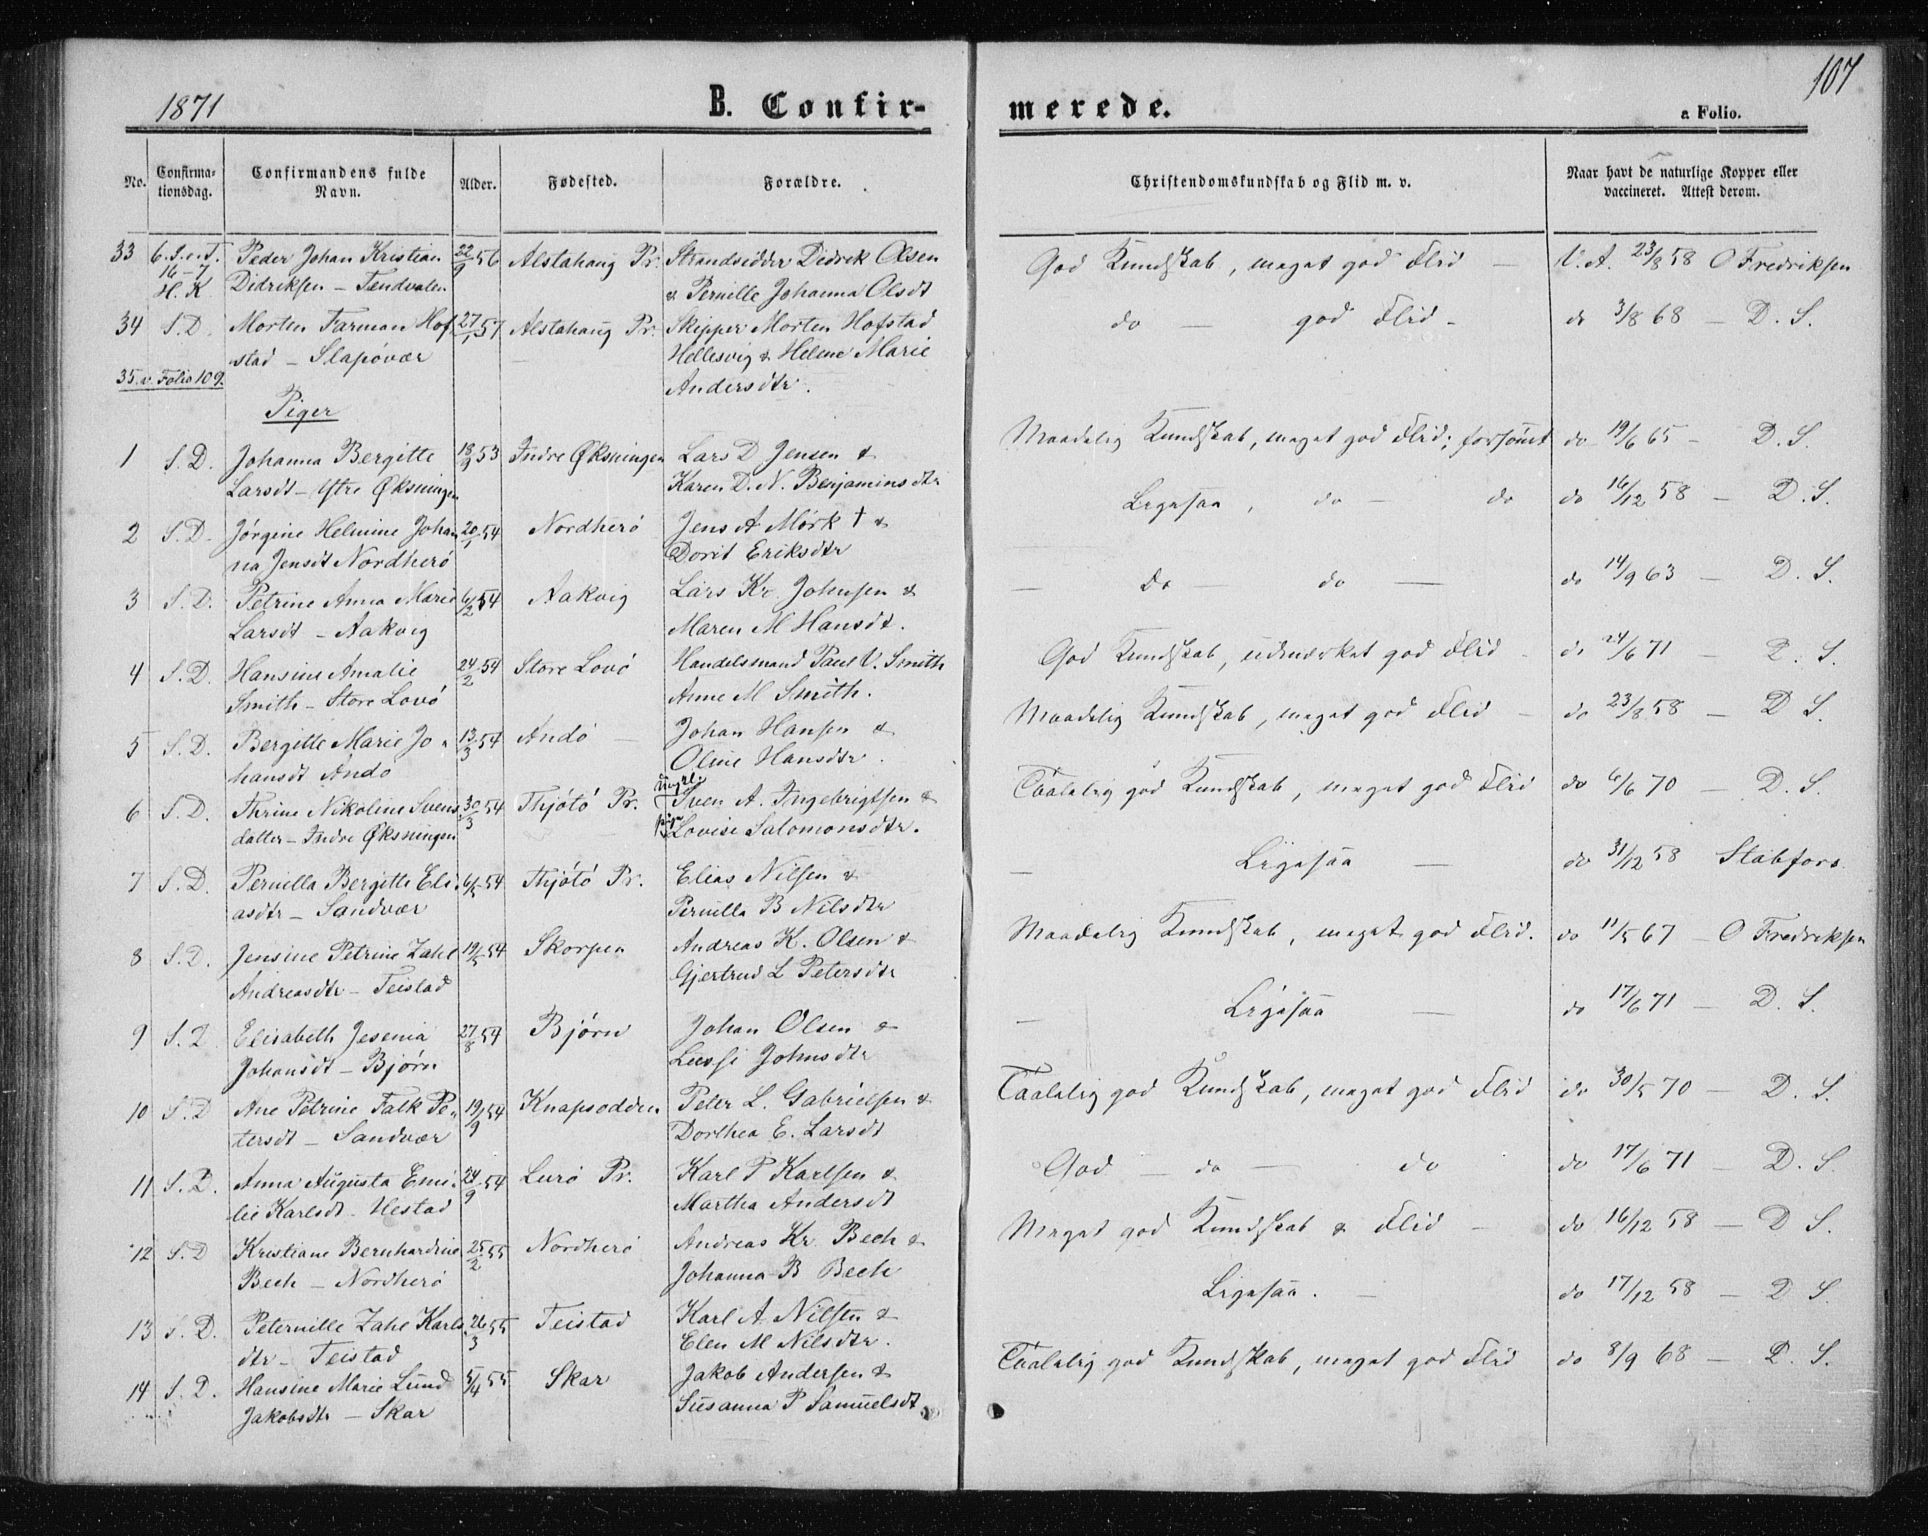 1871
B. Confirmerede.
107
a Folio.
No. Confirmationsdag. Confirmandens fulde Navn. Alder. Fødested. Forældre. Christendomskundskab og Flid m. v. Naar havt de naturlige Kopper eller vaccineret. Attest derom.
33 6. S. e. T. Peder Johan Kristian 22/9 56 Alstahaug Pr. Strandsidder Didrik Olsen God Kundskab, meget god Flid — V. A. 23/8 58 O Fredriksen
16-7 H. K. Didriksen — Tendvalen & Pernille Johanna Olsdt
34 S. D. Morten Farman Hof 27/1 57 Alstahaug Pr. Skipper Morten Hofstad do — god Flid — do 3/8 68 — D. S.
stad — Slapøvær — Hellesvig & Helene Marie
35 v. Folio 109. Andersdtr.
Piger
1 S. D. Johanna Bergitte 18/9 53 Indre Øksningen Lars D Jensen & Maadelig Kundskab, meget god Flid; forsømt do 19/6 65 — D. S.
Larsdt — Ytre Øksningen Karen D. N. Benjaminsdtr
2 S. D. Jørgine Helmine Johan 20/1 54 Nordherø Jens A Mørk † & Ligesaa, do — do do 16/12 58 — D. S.
na Jensdt Nordherø Dorit Eriksdtr
3 S. D. Petrine Anna Marie 6/2 54 Aakvig Lars Kr. Johnsen & — do — do — do 14/9 63 — D. S.
Larsdt — Aakvig Maren M Hansdt.
4 S. D. Hansine Amalie 24/2 54 Store Lovø Handelsmand Paul V. Smith God Kundskab, udmærket god Flid — do 24/6 71 — D. S.
Smith — Store Lovø Anne M Smith.
5 S. D. Bergitte Marie Jo- 13/3 54 Andø — Johan Hansen & Maadelig Kundskab, meget god Flid — do 23/8 58 — D S.
hansdt Andø Oline Hansdtr.
6 S. D. Thrine Nikoline Svens 30/3 54 Thjøtø Pr. Ungkl. Sven A. Ingebrigtsen & Taalelig god Kundskab, meget god Flid do 6/6 70 — D. S.
datter — Indre Øksningen pige Lovise Salomonsdtr.
7 S. D. Pernilla Bergitte Eli- 6/5 54 Thjøtø Pr. Elias Nilsen & — Ligesaa — do 31/12 58 Stabfors.
asdtr — Sandvær Pernilla B Nilsdtr
8 S. D. Jensine Petrine Zahl 19/5 54 Skorpen Andreas K. Olsen & Maadelig Kundskab, meget god Flid. do 11/5 67 — O Fredriksen
Andreasdtr — Teistad Gjertrud L Petersdtr
9 S. D. Elisabeth Jesenia 27/8 54 Bjørn Johan Olsen & — Ligesaa — do 17/6 71 — D. S.
Johansdt — Bjørn Lussi Johnsdtr
10 S. D Ane Petrine Falk Pe- 19/9 54 Knapsodden Peter L. Gabrielsen & Taalelig god Kundskab, meget god Flid do 30/5 70 — D. S.
tersdt — Sandvær Dorthea E. Larsdt
11 S. D. Anna Augusta Emi- 24/9 54 Lurø Pr. Karl P Karlsen & God — do — do do 17/6 71 — D. S.
lie Karlsdt — Hestad Martha Andersdt
12 S. D Kristiane Bernhardine 25/2 55 Nordherø Andreas Kr. Bech & Meget god Kundskab & Flid — do 16/12 58 — D S.
Bech — Nordherø Johanna B Bech
13 S. D. Peternille Zahl Karls 26/3 55 Teistad Karl A. Nilsen & Ligesaa. — do 17/12 58 — D S.
dtr — Teistad Elen M Nilsdtr.
14 S. D. Hansine Marie Lund 5/4 55 Skar Jakob Andersen & Taalelig god Kundskab, meget god Flid do 8/9 68 — D. S.
Jakobsdtr — Skar Susanna P Samuelsdt